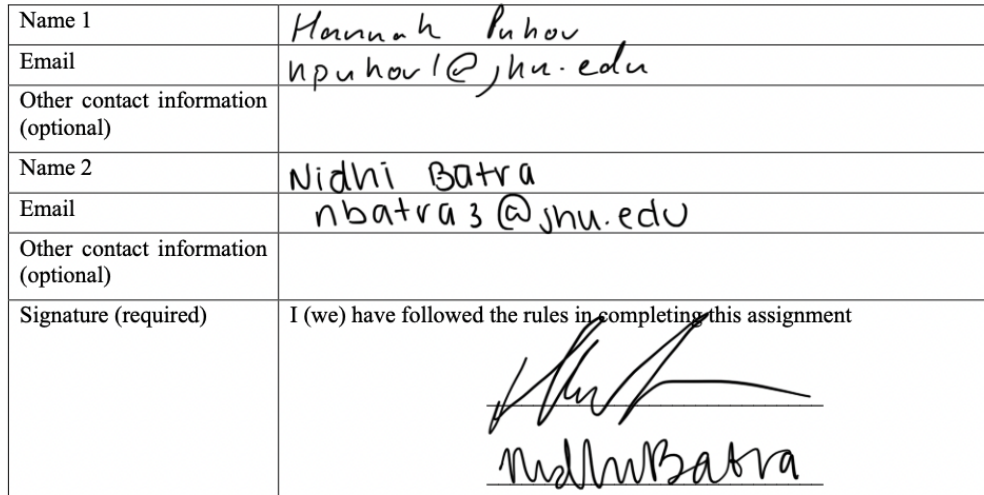 Name 1 Hannah Puhov
Email hpuhov1@jhu.edu
Other contact information
(optional)
Name 2 Nidhi Batra
Email nbatra3@jhu.edu
Other contact information
(optional)
Signature (required) I (we) have followed the rules in completing this assignment
Nidhi Batra